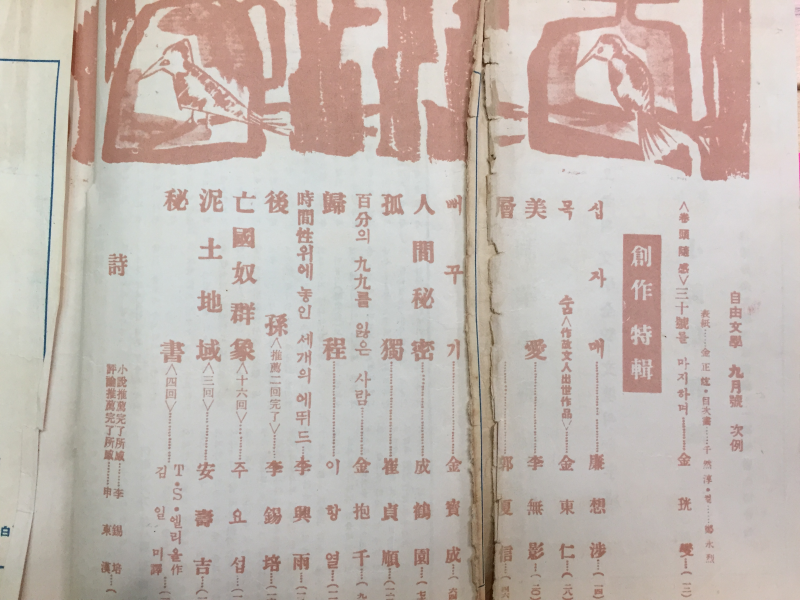 自由文學 九月號 次例
表紙……金正
<卷頭隨感>三十號를 마지하며………金珖燮…(一二)
創作特輯
십자매………廉想涉…(一四)
목숨<作故文人出世作品>………金東仁…(二八)
美愛………李無影…(二〇)
層………郭夏信…(四六)
뻐꾸기………金寶成
人間秘密………成鶴園
孤獨………崔貞順
百分의 九九를 잃은 사람………金抱千
歸程………이항열
時間性위에 놓인 세개의 에뛰드…李興雨
後孫<推薦二回完了>…李錫培
亡國奴群象<十六回>………주요섭
泥土地域<三回>………安壽吉
秘書<四回>………T·S·엘리웉作 김일미譯
小說推薦完了所感………李錫培
評論推薦完了所感………申東漢
詩
白